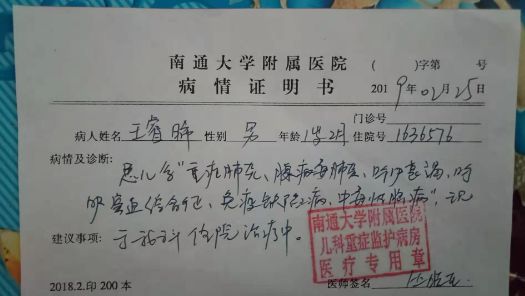 南通大学附属医院 （ ）字第 号
病情证明书 2019年02月25日
门诊号
病人姓名 王睿晞 性别 男 年龄 1岁2月 住院号 1636576
病情及诊断:
患儿会"重症肺炎、腺病毒肺炎、呼吸衰竭、呼
吸窘迫综合征、免疫缺陷病、中毒性脑病",现
建议事项: 于我科住院治疗中。
南通大学附属医院
儿科重症监护病房
医疗专用章
2018.2.印200本 医师签名